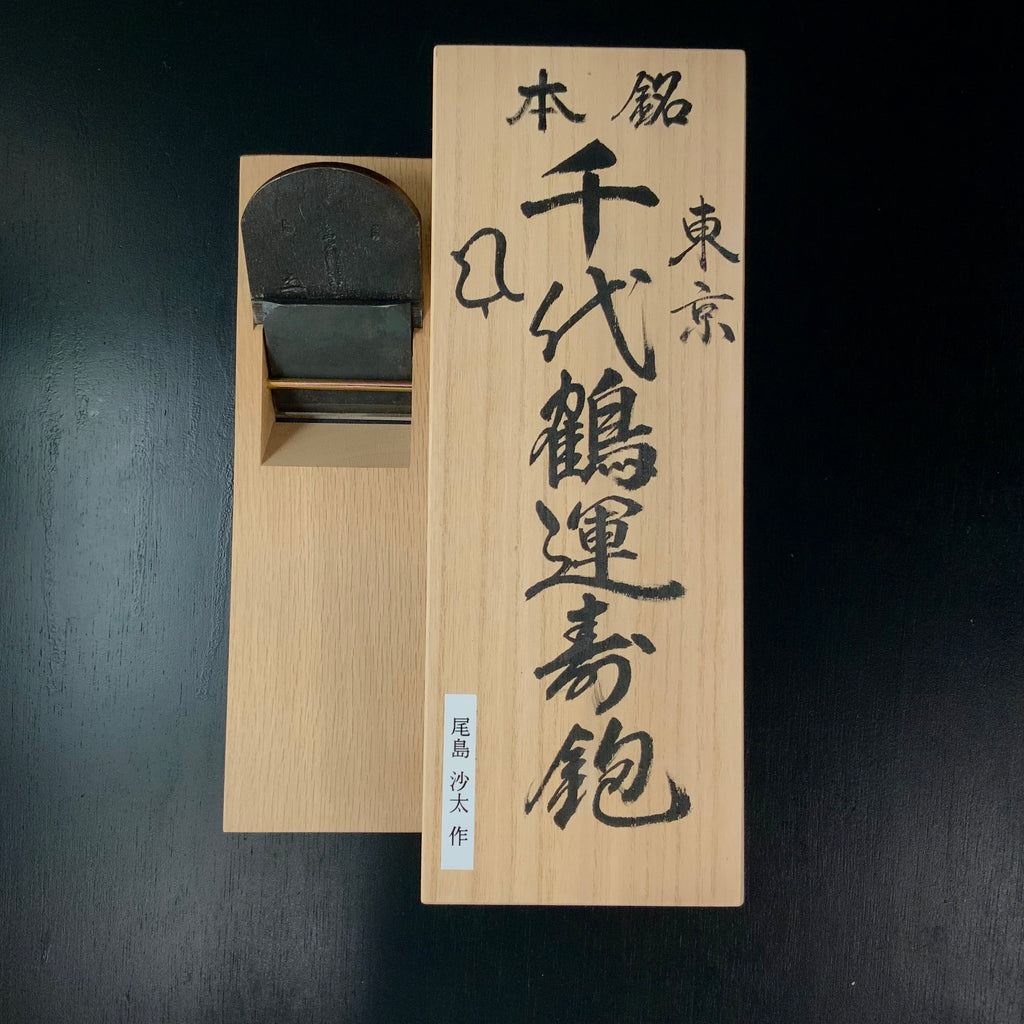 本銘
東京
千代鶴運寿鉋
尾島 沙太 作